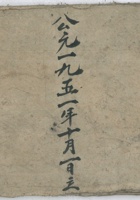 公元一九五一年十月一日立